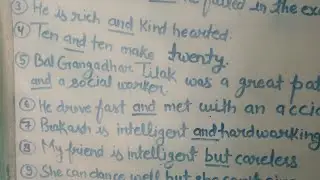 ③ He is rich and kind hearted.
④ Ten and ten make twenty.
⑤ Bal Grangadhar Tilak was a great
and a social worker.
⑥ He drove fast and met with an
⑦ Prakash is intelligent and hardworking
⑧ My friend is intelligent but careless
⑨ She can dance well but she